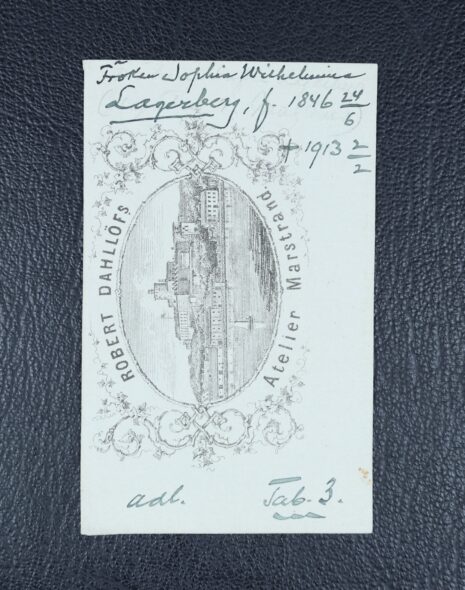 Fröken Sophia Wilhelmina
Lagerberg, f. 1846 24/6
+ 1913 2/2
ROBERT DAHLLÖFS
Atelier Marstrand
adl.
Tab. 3.